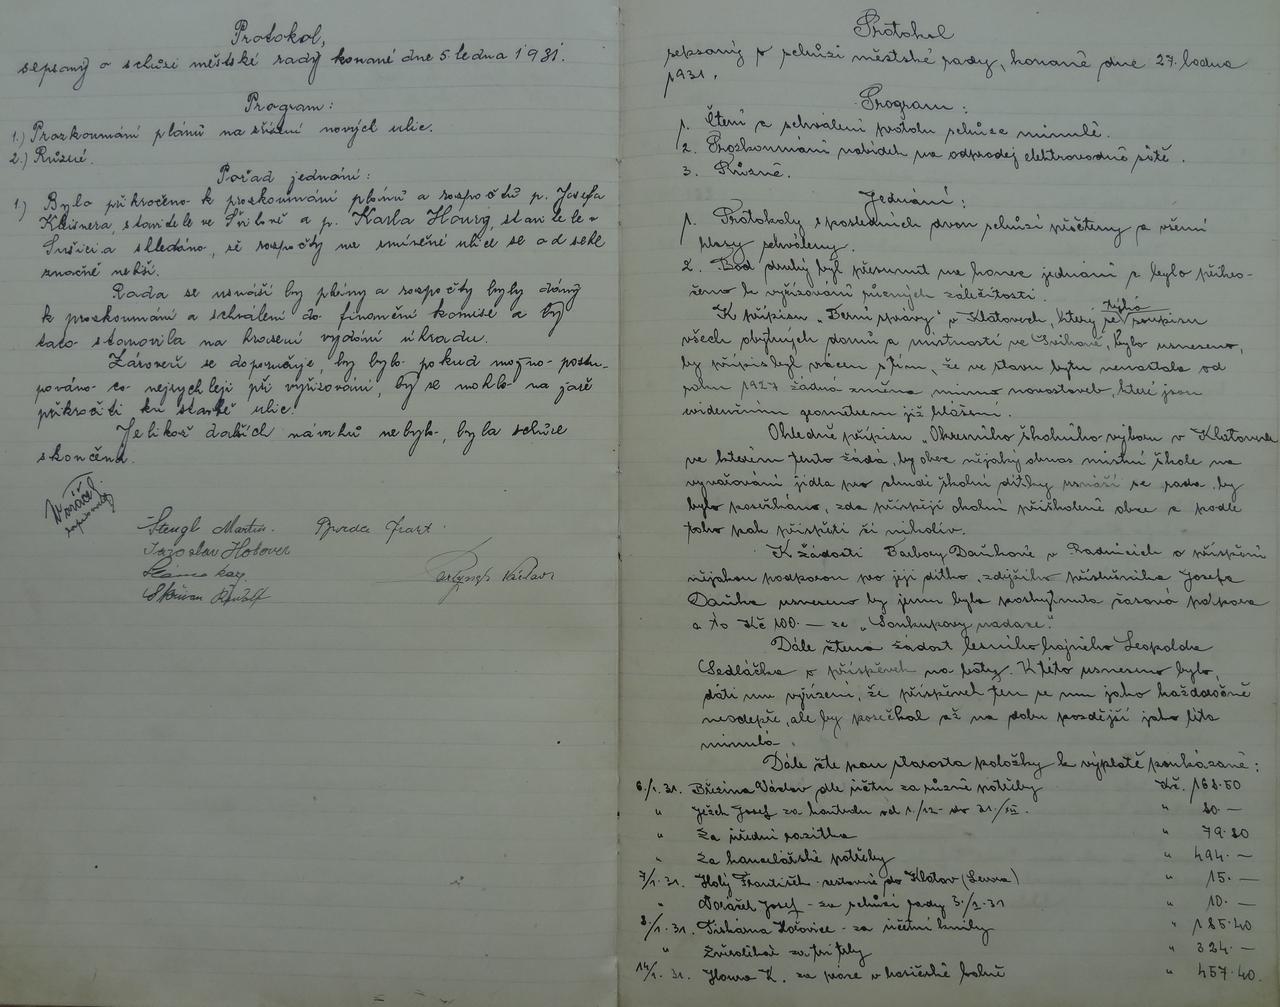 Protokol,
sepsaný o schůzi městské rady konané dne 5 ledna 1931.
Program:
1.) Prozkoumání plánů na zřízení nových ulic.
2.) Různé.
Pořad jednání:
1) Bylo přikročeno k prozkoumání plánů a rozpočtů p. Josefa
stavitele ve Švihově a p. Karla Houry, stavitele v
Sušici a shledáno, že rozpočty na zmíněné ulice se od sebe
značně neliší.
Rada se usnáší by plány a rozpočty byly dány
k prozkoumání a schválení do finanční komise a by
tato stanovila na hrazení vydání úhradu.
Zároveň se doporučuje, by bylo pokud možno postu-
pováno co nejrychleji při vyřizování, by se mohlo na jaře
přikročiti ku stavbě ulic.
Jelikož dalších návrhů nebylo, byla schůze
skončena.
Dvořáček
zapisovatel
Štengl Martin Brada Frant.
Jaroslav Hobaver
Skřivan Rudolf Václav
Protokol
sepsaný o schůzi městské rady, konané dne 27. ledna
1931.
Program:
1. Čtení a schválení protolu schůze minulé.
2. Prozkoumání nabídek na odprodej elektrovodné sítě.
3. Různé.
Jednání:
1. Protokoly z posledních dvou schůzí přečteny a všemi
hlasy schváleny.
2. Bod druhý byl přesunut na konec jednání a bylo přikro-
čeno k vyřizování různých záležitostí.
K přípisu „Berní správy" v Klatovech, který se týká soupisu
všech obytných domů a místností ve Švihově, bylo usneseno,
by přípis byl vrácen s tím, že ve stavu bytu nenastala od
roku 1927 žádná změna mimo novostaveb, které jsou
evidenčním geometrem již hlášeni.
Ohledně přípisu „Okresního školního výboru v Klatovech
ve kterém tento žádá, by obec nějaký obnos místní škole na
vyvařování jídla pro chudé školní dítky usnáší se rada, by
bylo posečkáno, zda přispějí okolní přiškolené obce a podle
toho pak přispěti či nikoliv.
K žádosti Barbory Daňkové v Radnicích o přispění
nějakou podporou pro její dítko, zdejšího příslušníka Josefa
Daňka usneseno by jemu byla poskytnuta časová podpora
a to Kč 100.— ze „Soukupovy nadace".
Dále čtena žádost lesního hajného Leopolda
Sedláčka o příspěvek na boty. K této usneseno bylo,
dáti mu vyřízení, že příspěvek ten se mu jako každoročně
neodepře, ale by posečkal až na dobu pozdější jako léta
minulá.
Dále čte pan starosta položky k výplatě poukázané:
6./1.31. Březina Václav dle účtu za různé potřeby Kč. 168.50
„ Ježek Josef za kontrolu od 1./12- do 31./XII. „ 80.—
„ Za úřední razítka „ 79.80
„ Za kancelářské potřeby „ 494.—
7/1.31. Holý František cestovné do Klatov (Lenora) „ 15.—
„ Dvořáček Josef - za schůzi rady 3./I.31 „ 10.—
8./1.31. Tiskárna Hořovice - za účetní knihy „ 185.40
„ Zvěrolékař za „ 324.—
14/1.31. Houra K. za práce v hasičské kolně „ 457.40.